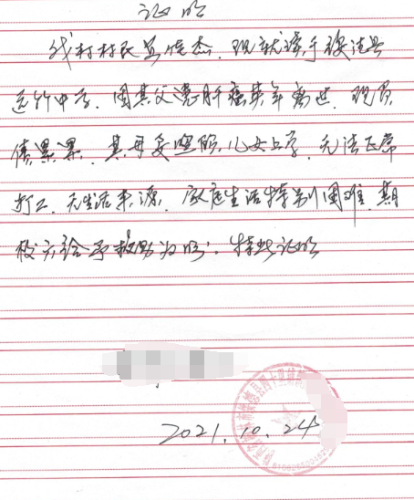 证明
我村村民 现就读于 法县
远竹中学，因其父患肝癌 年离世，现负
债累累，其母要照顾儿女上学，无法正常
打工，无生活来源，家庭生活特别困难，期
校方给予救助为盼，特此证明
2021.10.24